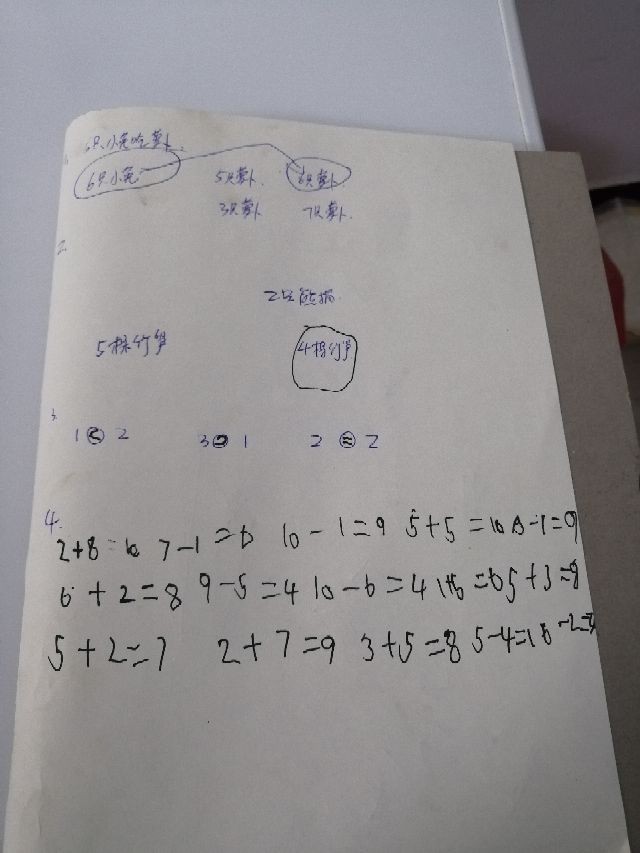 1. 6只小兔吃萝卜.
6只小兔 5只萝卜. 6只萝卜.
3只萝卜 7只萝卜.
2.
2只熊猫.
5根竹笋 4根竹笋
3.
1 < 2 3 > 1 2 = 2
4.
2+8=10 7-1=6 10-1=9 5+5=10
6+2=8 9-5=4 10-6=4 5+3=8
5+2=7 2+7=9 3+5=8 5-4=1